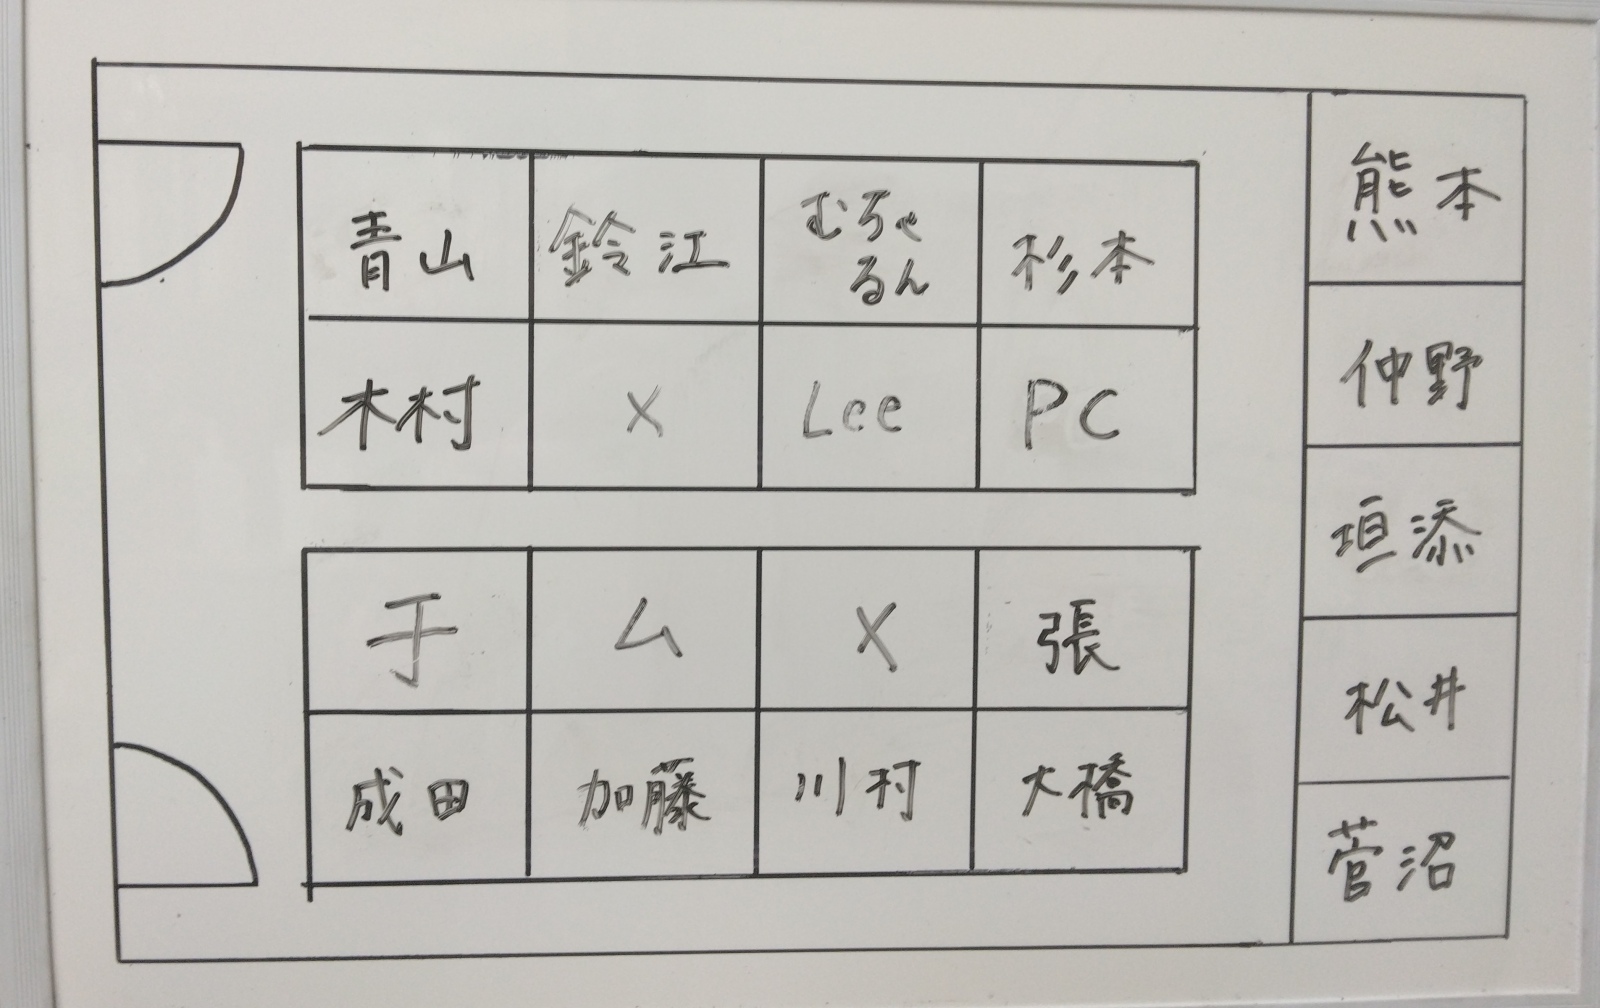 青山 鈴江 むらゃ 杉本
るん
木村 X Lee PC
于 ム X 張
成田 加藤 川村 大橋
熊本
仲野
垣添
松井
菅沼